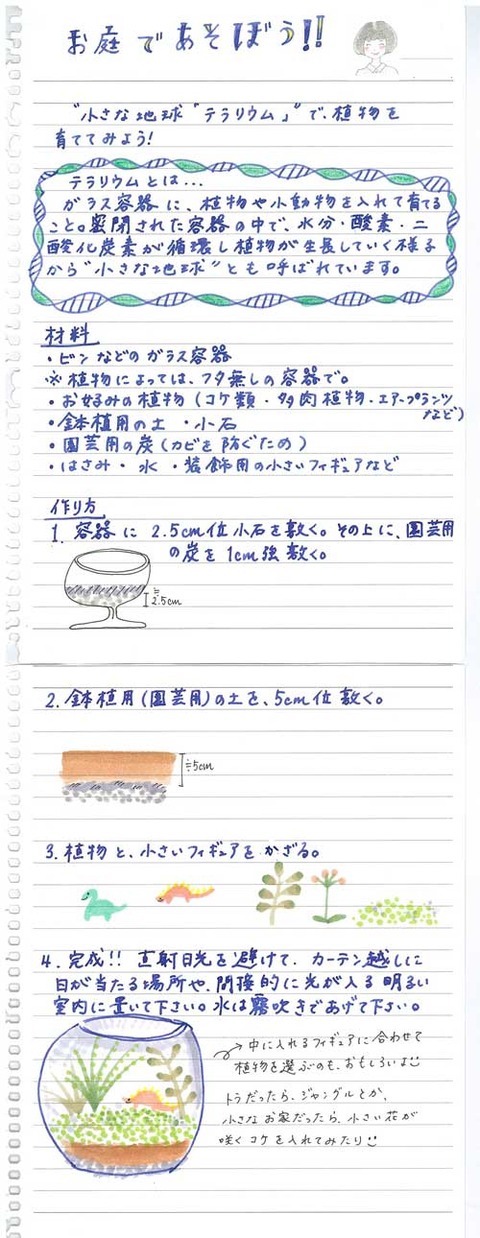 お庭であそぼう!!
"小さな地球"テラリウム」"で、植物を
育ててみよう!
テラリウムとは...
ガラス容器に、植物や小動物を入れて育てる
こと。密閉された容器の中で、水分・酸素・二
酸化炭素が循環し植物が生長していく様子
から"小さな地球"とも呼ばれています。
材料
・ビンなどのガラス容器
※植物によっては、フタ無しの容器で。
・お好みの植物(コケ類・多肉植物・エアープランツ
など)
・鉢植用の土 ・小石
・園芸用の炭(カビを防ぐため)
・はさみ・水 ・装飾用の小さいフィギュアなど
作り方
1. 容器に 2.5cm位小石を敷く。その上に、園芸用
の炭を1cm強敷く。
≒2.5cm
2. 鉢植用(園芸用)の土を、5cm位敷く。
≒5cm
3. 植物と、小さいフィギュアをかざる。
4. 完成!! 直射日光を避けて、カーテン越しに
日が当たる場所や、間接的に光が入る明るい
室内に置いて下さい。水は霧吹きであげて下さい。
中に入れるフィギュアに合わせて
植物を選ぶのも、おもしろいよ
トラだったら、ジャングルとか、
小さなお家だったら、小さい花が
咲くコケを入れてみたり